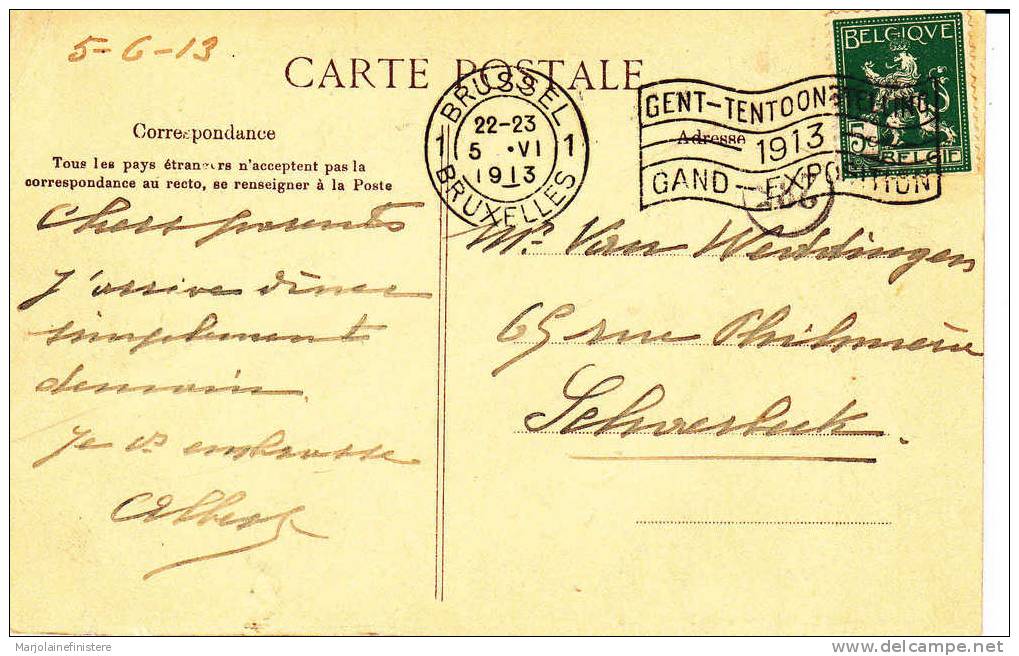 5-6-13
CARTE POSTALE
BRUSSEL
1 22-23 1
5 ·VI
1913
BRUXELLES
GENT-TENTOONSTELLING
1913
GAND-EXPOSITION
BELGIQVE
5c
BELGIË
Correspondance
Adresse
Tous les pays étrangers n'acceptent pas la
correspondance au recto, se renseigner à la Poste
Chers parents
J'arrive dîner
simplement
demain.
Je vs embrasse
Albert
Mr. Van Weddingen
65 rue Philomène
Schaerbeek.
Marjolainefinistere
delcampe.net